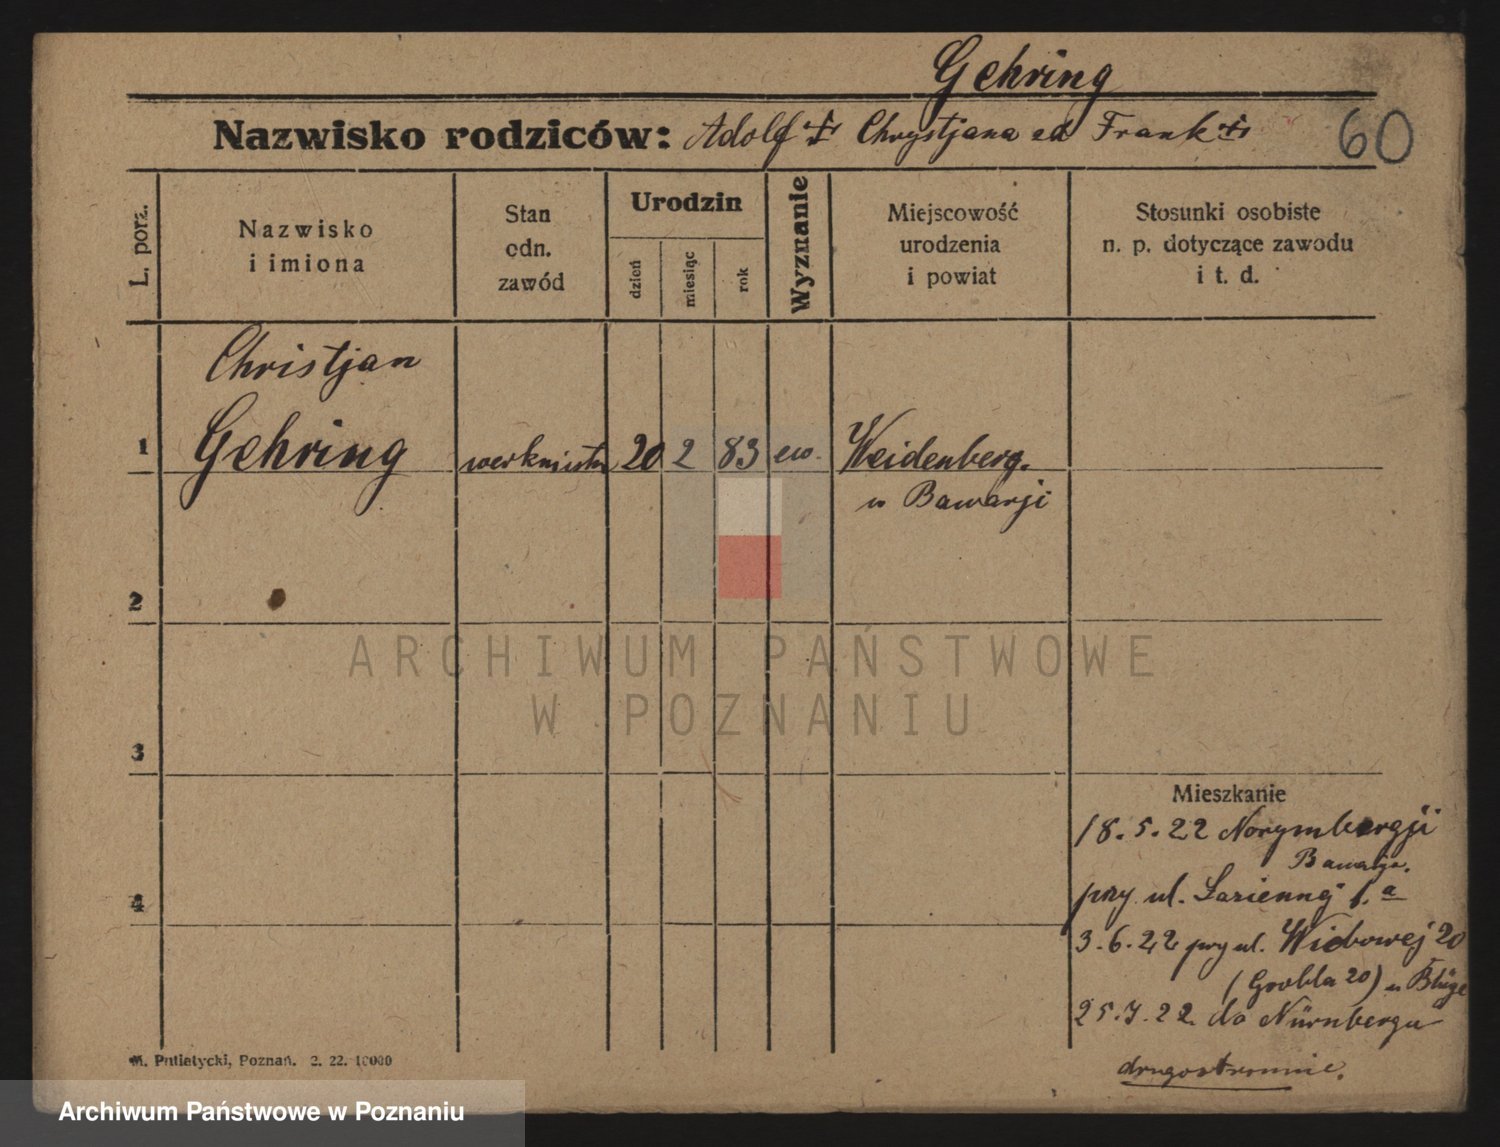 Gehring
Nazwisko rodziców: Adolf † Chrystjana zd Frank †
60
L. porz.
Nazwisko
i imiona
Stan
odn.
zawód
Urodzin
dzień
miesiąc
rok
Wyznanie
Miejscowość
urodzenia
i powiat
Stosunki osobiste
n. p. dotyczące zawodu
i t. d.
Christjan
1 Gehring werkmistrz 20 2 83 ew. Weidenberg.
w Bawarji
2
3
Mieszkanie
18.5.22 Norymbergji
Bawarja.
przy ul. Łaziennej
4
3.6.22 przy ul. 20
(Grobla 20) u
25.7.22 do Nürnbergu
drugostronnie.
M. Putiatycki, Poznań. 2. 22. 10000
ARCHIWUM PAŃSTWOWE
W POZNANIU
Archiwum Państwowe w Poznaniu